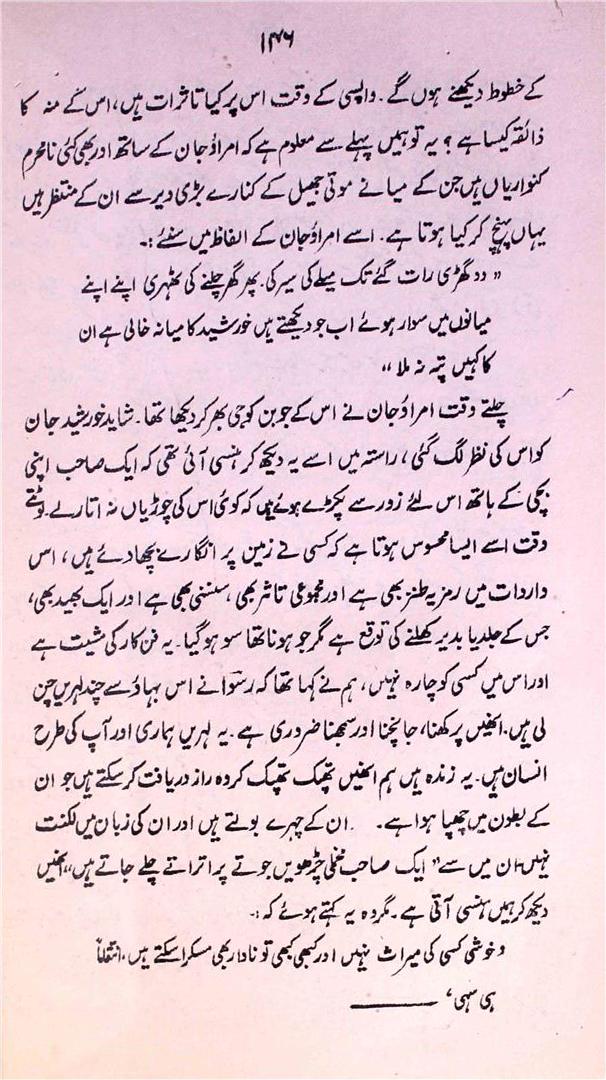 ۱۴۶
کے خطوط دیکھنے ہوں گے۔ واپسی کے وقت اس پر کیا تاثرات ہیں، اس کے منہ کا
ذائقہ کیسا ہے؟ یہ تو ہمیں پہلے سے معلوم ہے کہ امراؤ جان کے ساتھ اور بھی کئی نامحرم
کنواریاں ہیں جن کے میانے موتی جھیل کے کنارے بڑی دیر سے ان کے منتظر ہیں
یہاں پہنچ کر کیا ہوتا ہے۔ اسے امراؤ جان کے الفاظ میں سنئے :۔
” دو گھڑی رات گئے تک میلے کی سیر کی۔ پھر گھر چلنے کی ٹھہری اپنے اپنے
میانوں میں سوار ہوئے اب جو دیکھتے ہیں خورشید کا میانہ خالی ہے ان
کا کہیں پتہ نہ ملا “
چلتے وقت امراؤ جان نے اس کے جوبن کو جی بھر کر دیکھا تھا۔ شاید خورشید جان
کو اس کی نظر لگ گئی، راستہ میں اسے یہ دیکھ کر ہنسی آئی تھی کہ ایک صاحب اپنی
بچی کے ہاتھ اس لئے زور سے پکڑے ہوئے ہیں کہ کوئی اس کی چوڑیاں نہ اتار لے۔ لوٹتے
وقت اسے ایسا محسوس ہوتا ہے کہ کسی نے زمین پر انگارے بچھا دئے ہیں، اس
واردات میں رمزیہ طنز بھی ہے اور مجموعی تاثر بھی، سنسنی بھی ہے اور ایک بھید بھی،
جس کے جلد یا بدیر کھلنے کی توقع ہے مگر جو ہونا تھا سو ہو گیا۔ یہ فن کار کی مشیت ہے
اور اس میں کسی کو چارہ نہیں، ہم نے کہا تھا کہ رسوا نے اس بہاؤ سے چند لہریں چن
لی ہیں۔ انھیں پرکھنا، جانچنا اور سمجھنا ضروری ہے۔ یہ لہریں ہماری اور آپ کی طرح
انسان ہیں۔ یہ زندہ ہیں ہم انھیں تھپک تھپک کر وہ راز دریافت کر سکتے ہیں جو ان
کے بطون میں چھپا ہوا ہے۔ ان کے چہرے بولتے ہیں اور ان کی زبان میں لکنت
نہیں۔ ان میں سے ” ایک صاحب مخملی چڑھویں جوتے پر اتراتے چلے جاتے ہیں “ انھیں
دیکھ کر ہمیں ہنسی آتی ہے۔ مگر وہ یہ کہتے ہوئے کہ :۔
’ خوشی کسی کی میراث نہیں اور کبھی کبھی تو نادار بھی مسکرا سکتے ہیں، انتقاماً
ہی سہی ‘